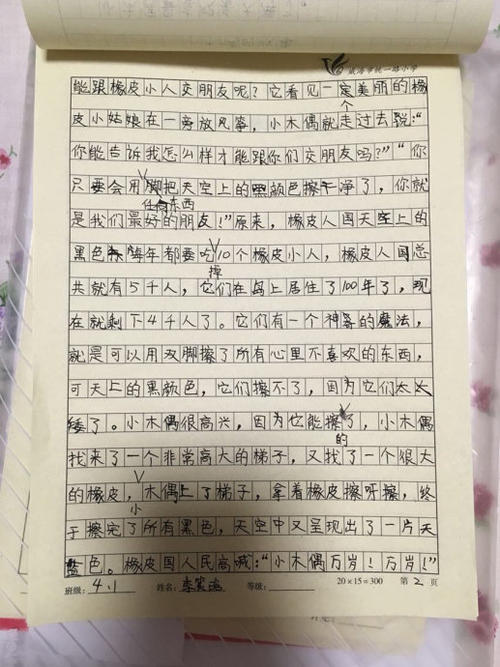 威海市统一路小学
能跟橡皮小人交朋友呢？它看见一个美丽的橡
皮小姑娘在一旁放风筝，小木偶就走过去说：“
你能告诉我怎么样才能跟你们交朋友吗？”“你
只要会用任何东西把天空上的黑颜色擦干净了，你就
是我们最好的朋友！”原来，橡皮人国天空上的
黑色每年都要吃掉10个橡皮小人，橡皮人国总
共就有5千人，它们在岛上居住了100年了，现
在就剩下4千人了。它们有一个神器的魔法，
就是可以用双脚擦了所有心里不喜欢的东西，
可天上的黑颜色，它们擦不了，因为它们太太
矮了。小木偶很高兴，因为它能擦的了，小木偶
找来了一个非常高大的梯子，又找了一个很大
的橡皮，小木偶上了梯子，拿着橡皮擦呀擦，终
于擦完了所有黑色，天空中又呈现出了一片天
蓝色。橡皮国人民高喊：“小木偶万岁！万岁！”
班级：4.1 姓名：李 等级： 20×15=300 第2页